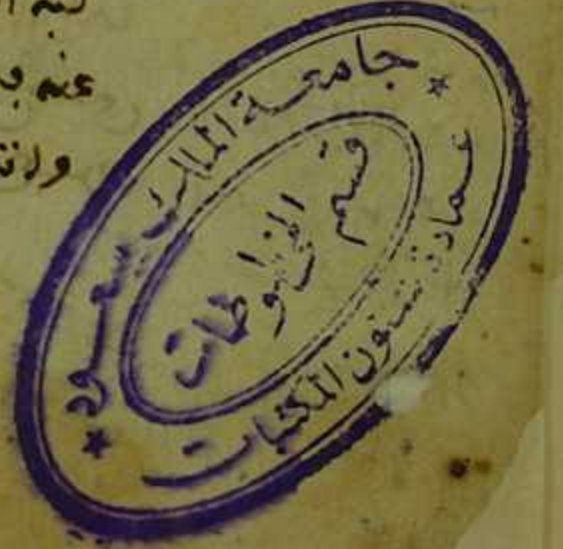 عنه
جامعة الملك سعود
عمادة شئون المكتبات
قسم المخطوطات